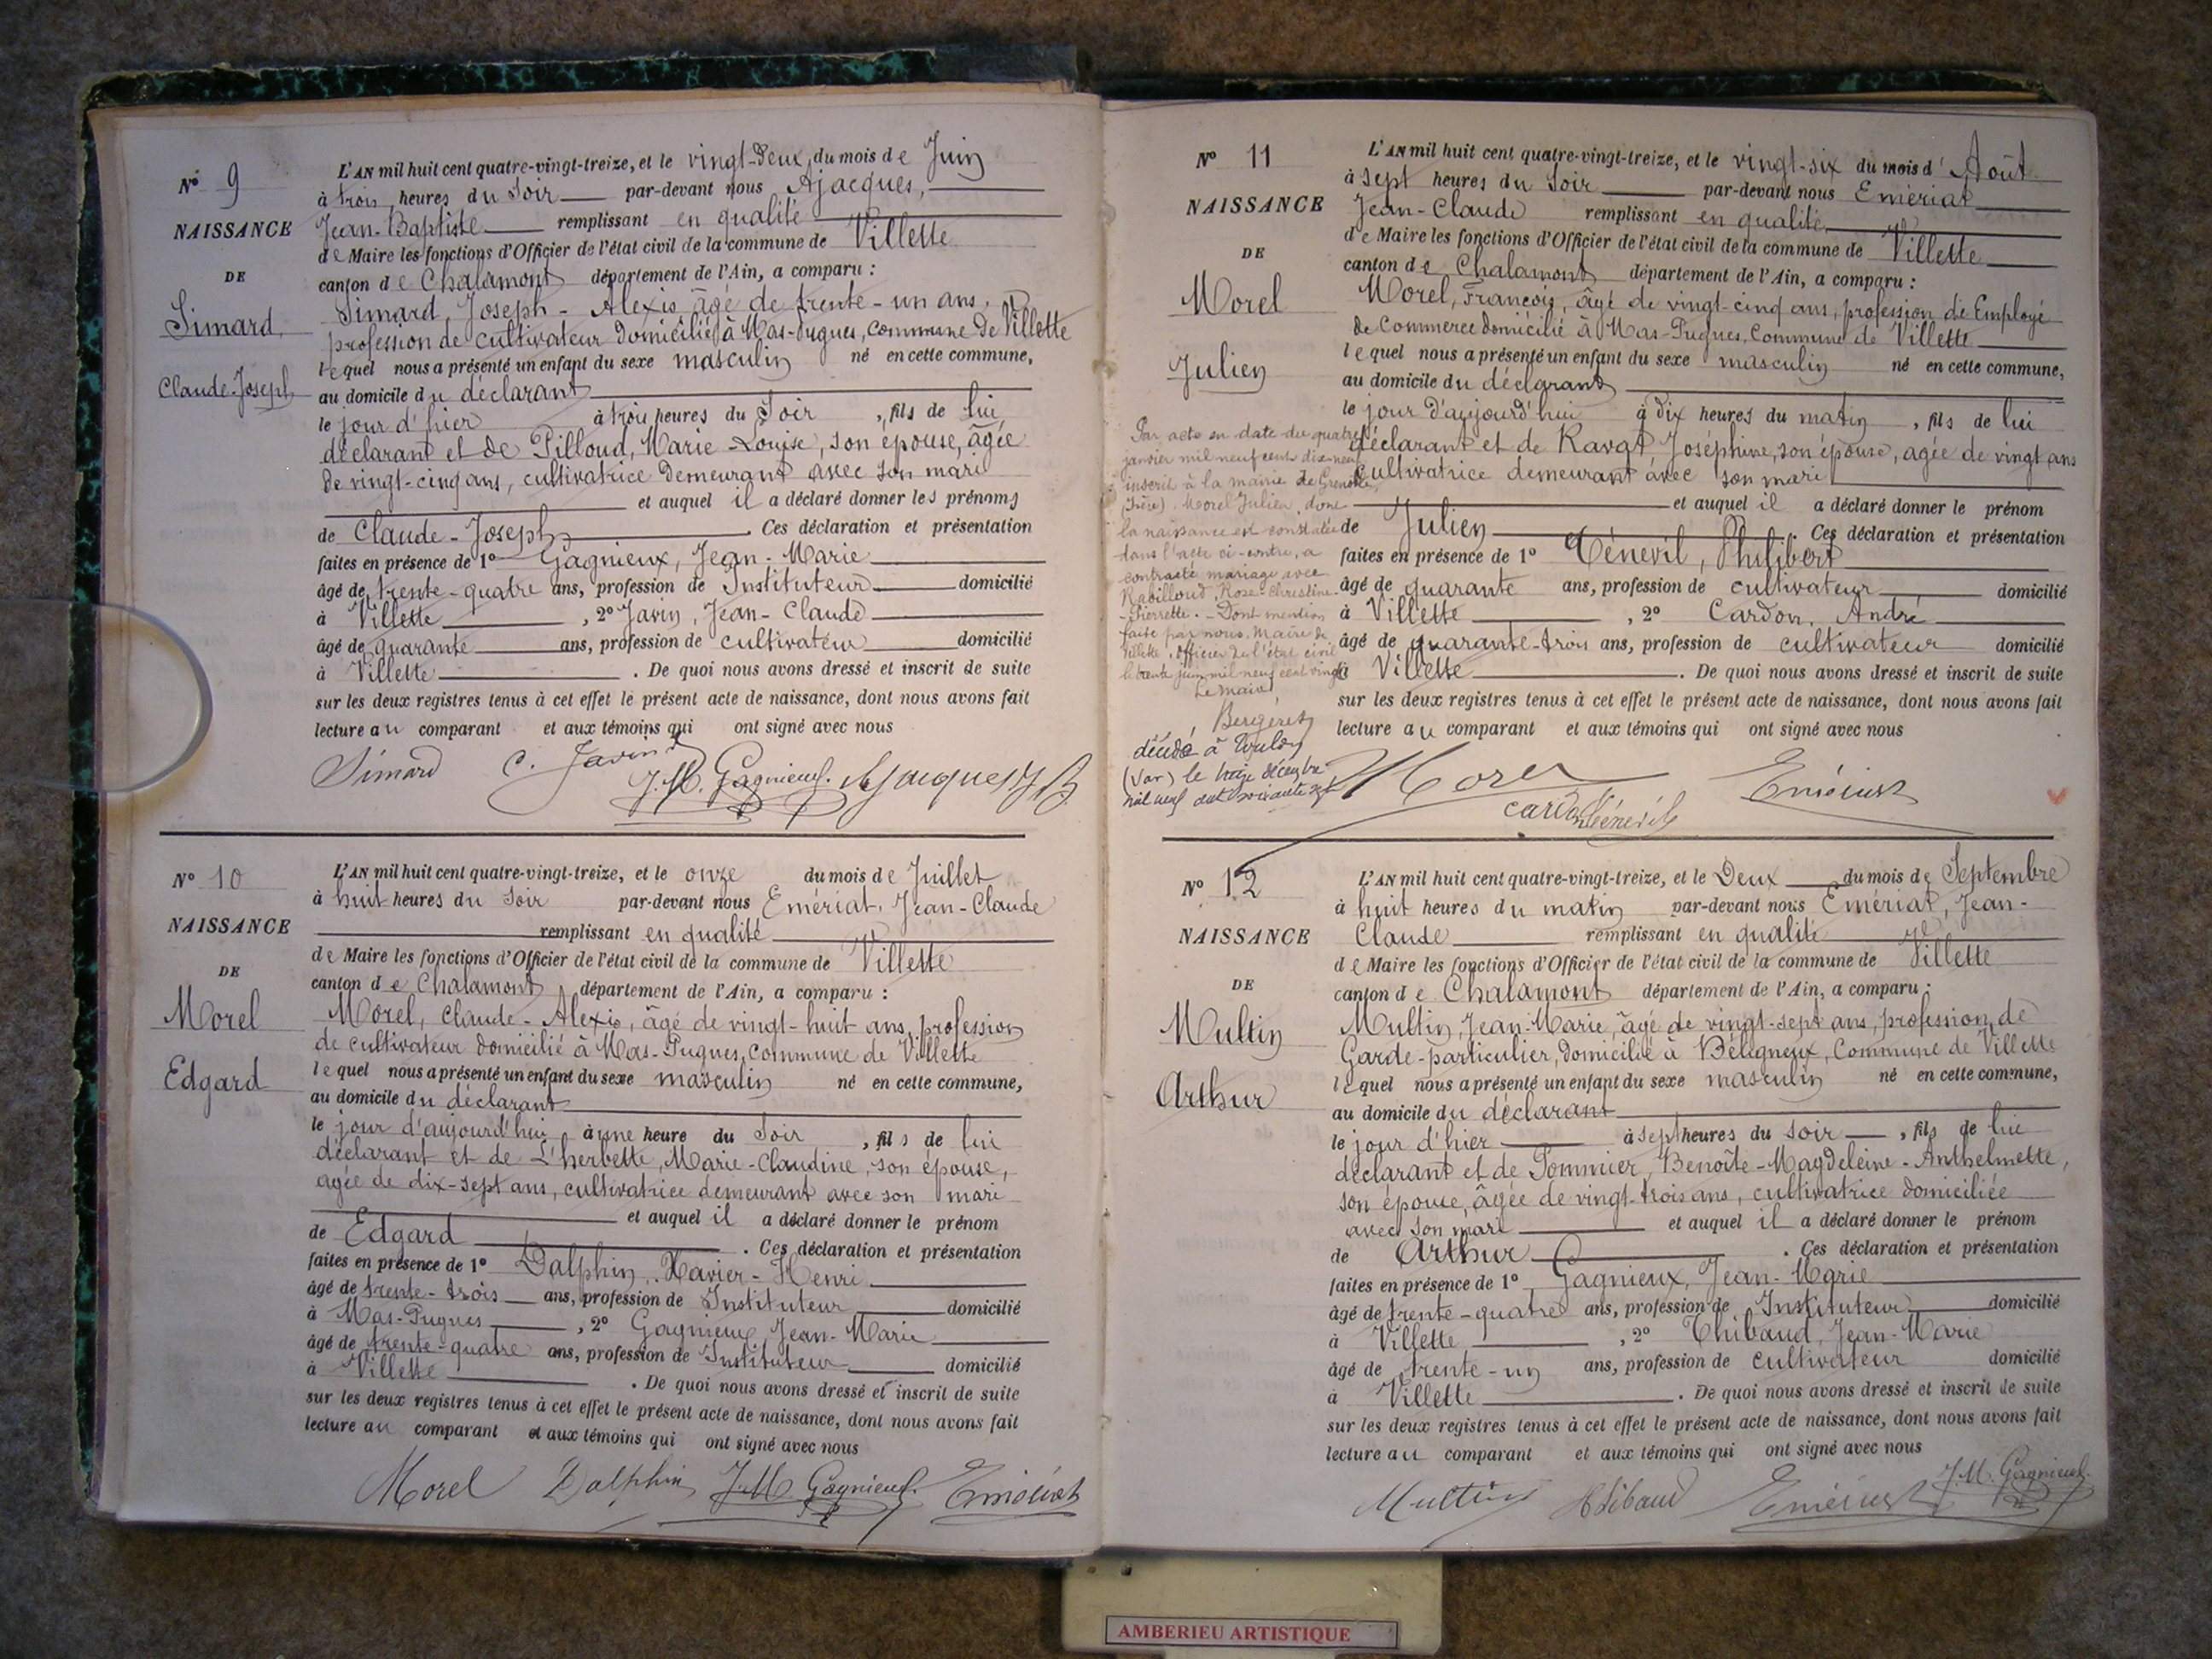 N° 9
NAISSANCE
DE
Simard
Claude-Joseph
L'AN mil huit cent quatre-vingt-treize, et le vingt-deux du mois de Juin
à trois heures du Soir par-devant nous Ajacques,
Jean-Baptiste remplissant en qualité
de Maire les fonctions d'Officier de l'état civil de la commune de Villette
canton de Chalamont département de l'Ain, a comparu :
Simard, Joseph-Alexis âgé de trente-un ans,
profession de cultivateur domicilié à Mas-Pugues, commune de Villette
lequel nous a présenté un enfant du sexe masculin né en cette commune,
au domicile du déclarant
le jour d'hier à trois heures du Soir, fils de lui
déclarant et de Pilloud, Marie-Louise, son épouse, âgée
de vingt-cinq ans, cultivatrice demeurant avec son mari
et auquel il a déclaré donner les prénoms
de Claude-Joseph. Ces déclaration et présentation
faites en présence de 1° Gagnieux, Jean-Marie
âgé de trente-quatre ans, profession de Instituteur domicilié
à Villette, 2° Javin, Jean-Claude
âgé de quarante ans, profession de cultivateur domicilié
à Villette. De quoi nous avons dressé et inscrit de suite
sur les deux registres tenus à cet effet le présent acte de naissance, dont nous avons fait
lecture au comparant et aux témoins qui ont signé avec nous
Simard C. Javin J.M. Gagnieux. Ajacques JB
N° 10
NAISSANCE
DE
Morel
Edgard
L'AN mil huit cent quatre-vingt-treize, et le onze du mois de Juillet
à huit heures du Soir par-devant nous Emériat, Jean-Claude
remplissant en qualité
de Maire les fonctions d'Officier de l'état civil de la commune de Villette
canton de Chalamont département de l'Ain, a comparu :
Morel, Claude-Alexis, âgé de vingt-huit ans, profession
de cultivateur domicilié à Mas-Pugues, commune de Villette
lequel nous a présenté un enfant du sexe masculin né en cette commune,
au domicile du déclarant
le jour d'aujourd'hui à une heure du Soir, fils de lui
déclarant et de L'herbette, Marie-Claudine, son épouse,
agée de dix-sept ans, cultivatrice demeurant avec son mari
et auquel il a déclaré donner le prénom
de Edgard. Ces déclaration et présentation
faites en présence de 1° Dalphin, Xavier-Henri
âgé de trente-trois ans, profession de Instituteur domicilié
à Mas-Pugues, 2° Gagnieux, Jean-Marie
âgé de trente-quatre ans, profession de Instituteur domicilié
à Villette. De quoi nous avons dressé et inscrit de suite
sur les deux registres tenus à cet effet le présent acte de naissance, dont nous avons fait
lecture au comparant et aux témoins qui ont signé avec nous
Morel Dalphin J.M. Gagnieux. Emériat
N° 11
NAISSANCE
DE
Morel
Julien
Par acte en date du quatre
janvier mil neuf cent dix-neuf
inscrit à la mairie de Grenoble
(Isère), Morel Julien, dont
la naissance est constatée
dans l'acte ci-contre, a
contracté mariage avec
Rabilloud, Rose-Christine
-Pierrette. - Dont mention
faite par nous, Maire de
Villette, Officier de l'état civil
le trente juin mil neuf cent vingt
Le Maire,
décédé à Toulon
(Var) le treize décembre
mil neuf cent soixante
L'AN mil huit cent quatre-vingt-treize, et le vingt-six du mois d'Août
à sept heures du Soir par-devant nous Emériat
Jean-Claude remplissant en qualité
de Maire les fonctions d'Officier de l'état civil de la commune de Villette
canton de Chalamont département de l'Ain, a comparu :
Morel, François, âgé de vingt-cinq ans, profession de Employé
de Commerce domicilié à Mas-Pugues, Commune de Villette
lequel nous a présenté un enfant du sexe masculin né en cette commune,
au domicile du déclarant
le jour d'aujourd'hui à dix heures du matin, fils de lui
déclarant et de Ravat, Joséphine, son épouse, agée de vingt ans
cultivatrice demeurant avec son mari
et auquel il a déclaré donner le prénom
de Julien. Ces déclaration et présentation
faites en présence de 1° Ténevil, Philibert
âgé de quarante ans, profession de cultivateur domicilié
à Villette, 2° Cardon, André
âgé de quarante-trois ans, profession de cultivateur domicilié
à Villette. De quoi nous avons dressé et inscrit de suite
sur les deux registres tenus à cet effet le présent acte de naissance, dont nous avons fait
lecture au comparant et aux témoins qui ont signé avec nous
Morel Cardon Ténevil Emériat
N° 12
NAISSANCE
DE
Multin
Arthur
L'AN mil huit cent quatre-vingt-treize, et le Deux du mois de Septembre
à huit heures du matin par-devant nous Emériat, Jean-
Claude remplissant en qualité
de Maire les fonctions d'Officier de l'état civil de la commune de Villette
canton de Chalamont département de l'Ain, a comparu :
Multin, Jean-Marie, âgé de vingt-sept ans, profession de
Garde-particulier, domicilié à Béligneux, Commune de Villette
lequel nous a présenté un enfant du sexe masculin né en cette commune,
au domicile du déclarant
le jour d'hier à sept heures du soir, fils de lui
déclarant et de Pommier, Benoîte-Magdeleine-Anthelmette,
son épouse, âgée de vingt-trois ans, cultivatrice domiciliée
avec son mari et auquel il a déclaré donner le prénom
de Arthur. Ces déclaration et présentation
faites en présence de 1° Gagnieux, Jean-Marie
âgé de trente-quatre ans, profession de Instituteur domicilié
à Villette, 2° Thibaud, Jean-Marie
âgé de trente-un ans, profession de cultivateur domicilié
à Villette. De quoi nous avons dressé et inscrit de suite
sur les deux registres tenus à cet effet le présent acte de naissance, dont nous avons fait
lecture au comparant et aux témoins qui ont signé avec nous
Multin Thibaud Emériat J.M. Gagnieux.
AMBERIEU ARTISTIQUE